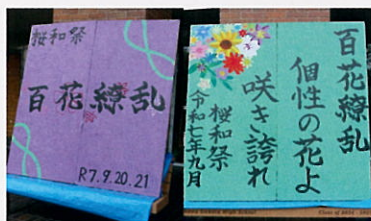 桜和祭
百花繚乱
R7.9.20.21
百花繚乱
個性の花よ
咲き誇れ
桜和祭
令和七年九月